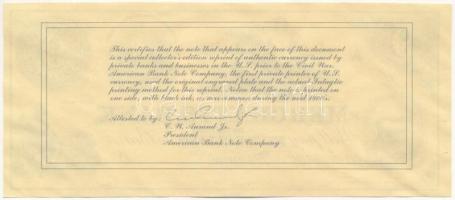 This certifies that the note that appears on the face of this document
is a special collector's edition reprint of authentic currency issued by
private banks and businesses in the U.S. prior to the Civil War.
American Bank Note Company, the first private printer of U.S.
currency, used the original engraved plate and the actual Intaglio
printing method for this reprint. Notice that the note is printed on
one side, with black ink, as were many during the mid 1800s.
Attested to by:
C. W. Jr.
President
American Bank Note Company